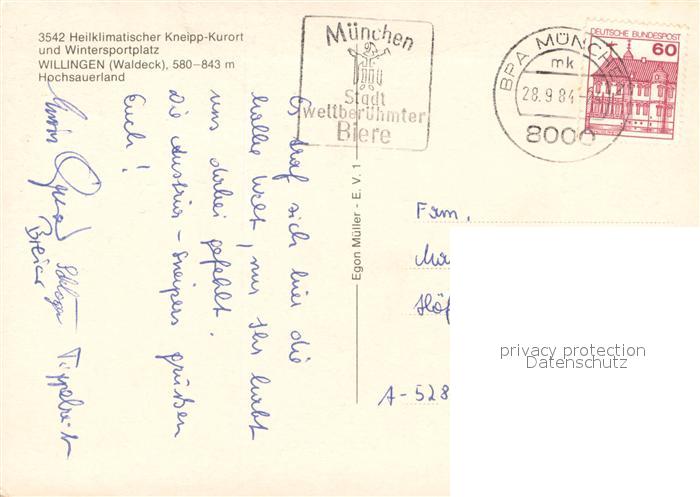 3542 Heilklimatischer Kneipp-Kurort
und Wintersportplatz
WILLINGEN (Waldeck), 580–843 m
Hochsauerland
München
Stadt
weltberühmter
Biere
BPA MÜNCHE
mk
28.9.84
8000
DEUTSCHE BUNDESPOST
60
Es traf sich hier die
halbe Welt, nur Ihr habt
uns dabei gefehlt.
Die Austria-Sneipers grüßen
Euch!
Egon Müller - E. V. 1
Fam.
Ma
Höf
A-528
privacy protection
Datenschutz